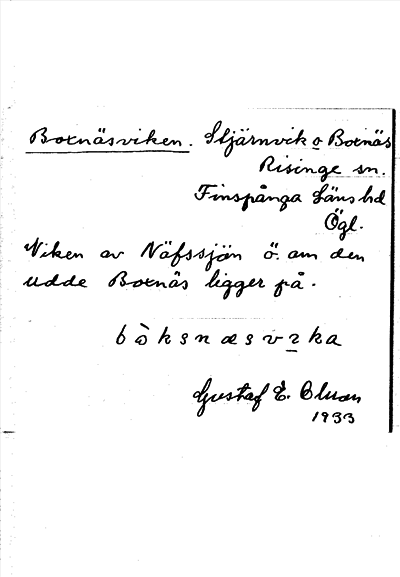 Boxnäsviken. Stjärnvik o Boxnäs
Risinge sn.
Finspånga Läns hd
Ögl.
Viken av Näfssjön ö. om den
udde Boxnäs ligger på.
bòksnæsvıka
Gustaf E. Olsson
1933